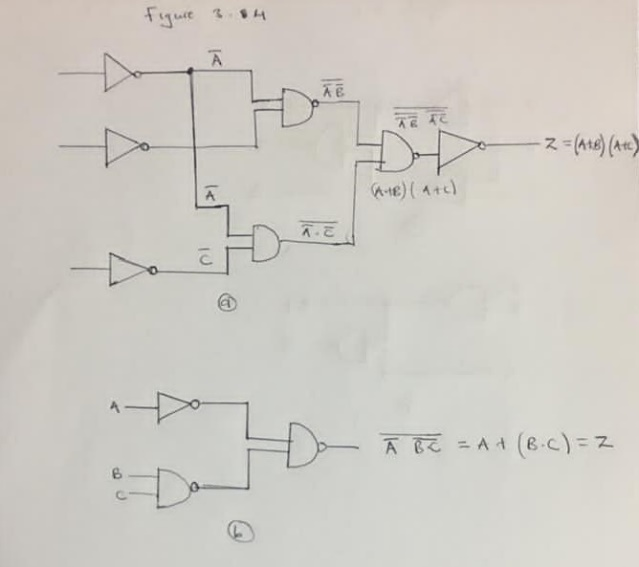 Figure 3.14
A̅
A̅ B̅
A̅B̅ A̅C̅
Z = (A+B) (A+C)
(A+B) ( A+C)
A̅
A̅ · C̅
C̅
a
A
B
C
A̅ B̅C̅ = A + (B·C) = Z
b